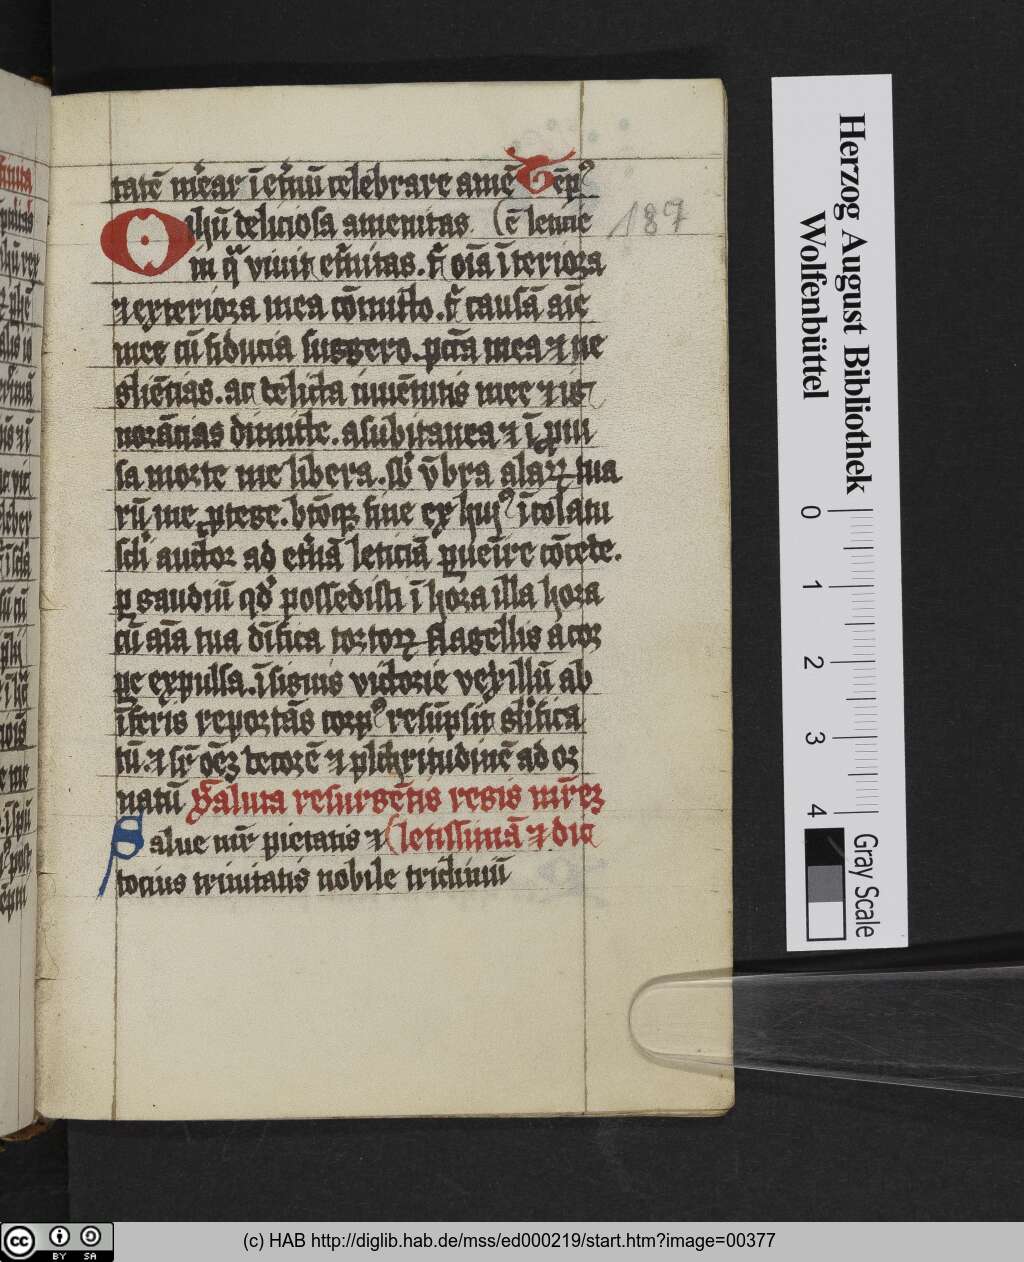 tatē mear ī et̄nū celebrare amē Tēpꝰ
O ihū deliciosa amenitas (cē leticie
in q̄ viuit et̄nitas. t̄ oīa īteriora
⁊ exteriora mea cōmitto. t̄ causā aīe
mee cū fiducia suggero. pctā mea ⁊ ne
gliētias. ac delicta iuuētutis mee ⁊ ig
norātias dimitte. a subitanea ⁊ ī ꝓui
sa morte me libera. sb̄ vmbra alaꝝ tua
rū me ꝓtege. btōqꝫ fine ex huiꝰ īcolatu
scli auctor ad et̄nā leticiā ꝑueīre cōcede.
ꝑ gaudiū qd̓ possedisti ī hora illa hora
cū aīa tua dīfica tortoꝝ flagellis a cor
ꝑe expulsa. īsignis victorie vexillū ab
īferis reportās corpꝰ resūpsit glīfica
tū. ⁊ sr̄ oēꝫ decorē ⁊ plchritudinē ad or
natū Saluta resurgētis regis mr̄eꝫ
Salue mr̄ pietatis ⁊ (letissimā ⁊ dic
tocius trinitatis nobile triclinū
187
Herzog August Bibliothek
Wolfenbüttel
0 1 2 3 4
Gray Scale
cc BY SA
(c) HAB http://diglib.hab.de/mss/ed000219/start.htm?image=00377